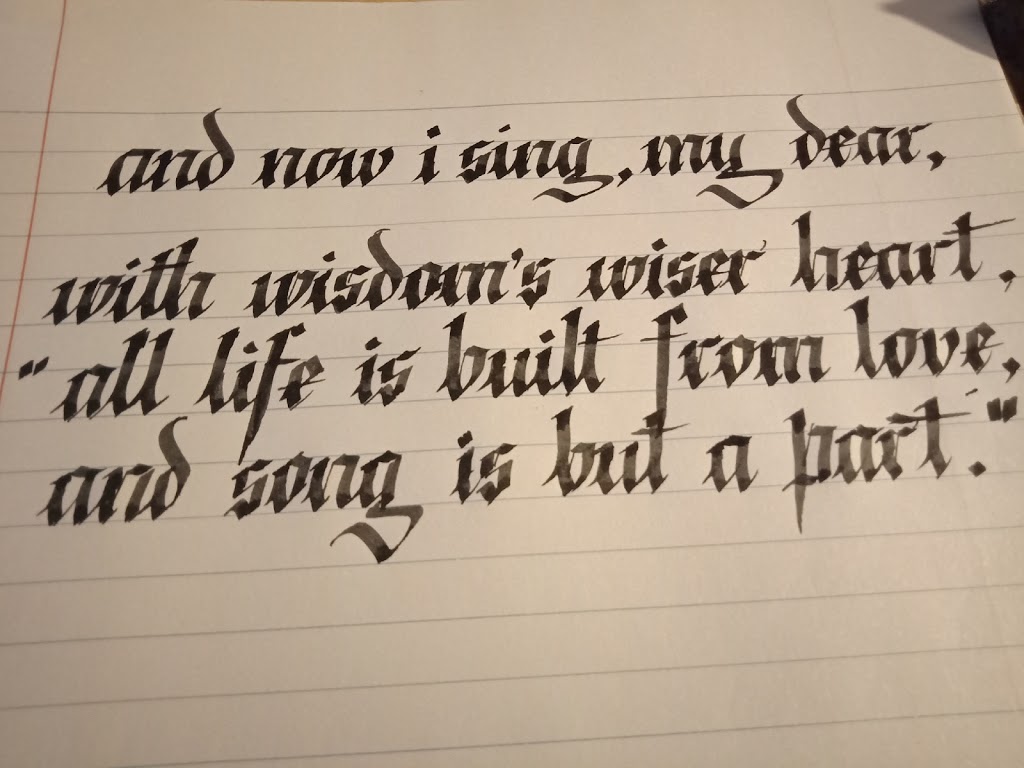 and now i sing, my dear,
with wisdom's wiser heart,
"all life is built from love,
and song is but a part."